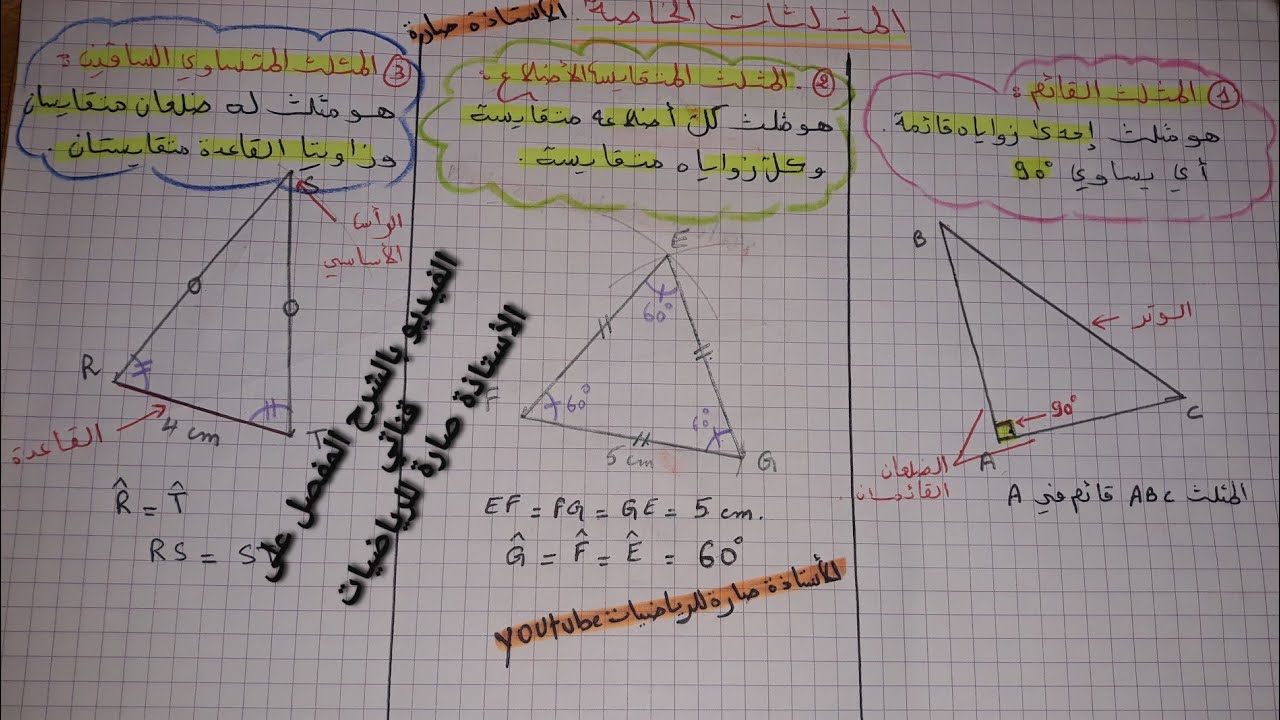 المثلثات الخاصة.
الأستاذة صارة
① المثلث القائم :
هو مثلث إحدى زواياه قائمة.
أي يساوي 90°
B
الوتر
C
90°
A
الضلعان
القائمان
المثلث ABC قائم في A
② . المثلث المتقايس الأضلاع :
هو مثلث كل أضلاعه متقايسة
وكل زواياه متقايسة .
E
60°
F
60°
60°
G
5 cm
EF = FG = GE = 5 cm.
Ĝ = F̂ = Ê = 60°
الأستاذة صارة للرياضيات youtube
③ المثلث المتساوي الساقين :
هو مثلث له ضلعان متقايسان
وزاويتا القاعدة متقايستان .
S
الرأس
الأساسي
R
T
4 cm
القاعدة
R̂ = T̂
RS = S
الفيديو بالشرح المفصل على
قناتي
الأستاذة صارة للرياضيات